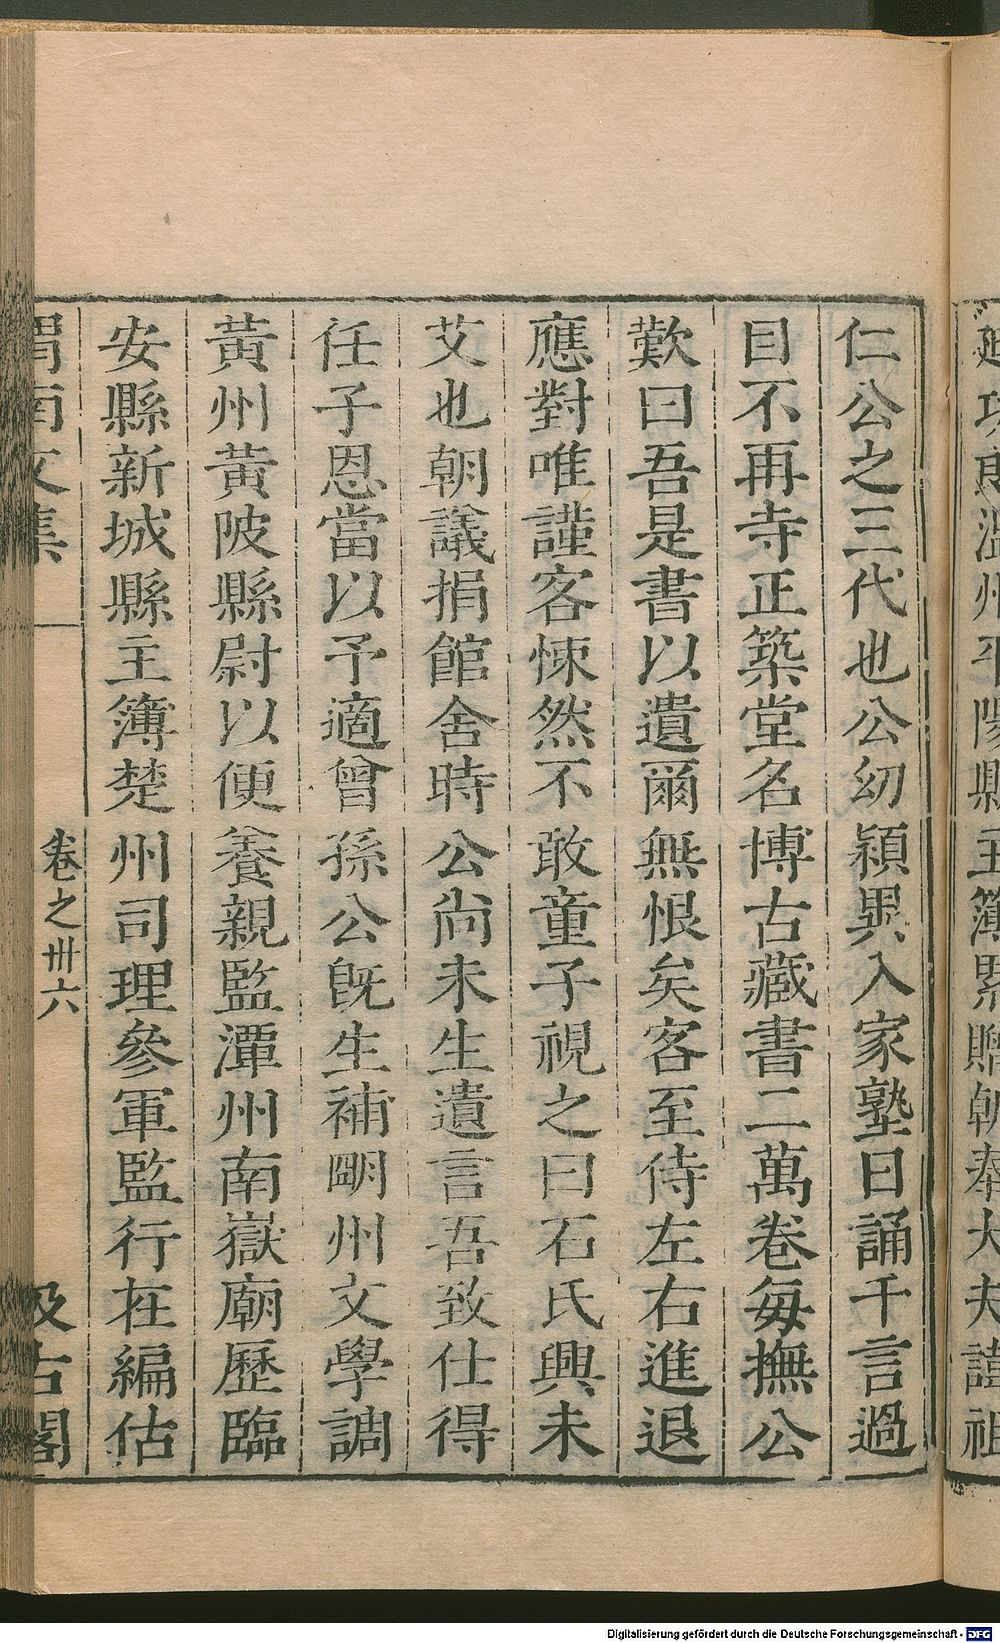 仁公之三代也公幼穎異入家塾日誦千言過
目不再寺正築堂名博古藏書二萬卷每撫公
歎曰吾是書以遺爾無恨矣客至侍左右進退
應對唯謹客悚然不敢童子視之曰石氏興未
艾也朝議捐館舍時公尚未生遺言吾致仕得
任子恩當以予適曾孫公既生補明州文學調
黃州黃陂縣尉以便養親監潭州南嶽廟歷臨
安縣新城縣主簿楚州司理參軍監行在編估
渭南文集 卷之卅六 汲古閣
Digitalisierung gefördert durch die Deutsche Forschungsgemeinschaft - DFG